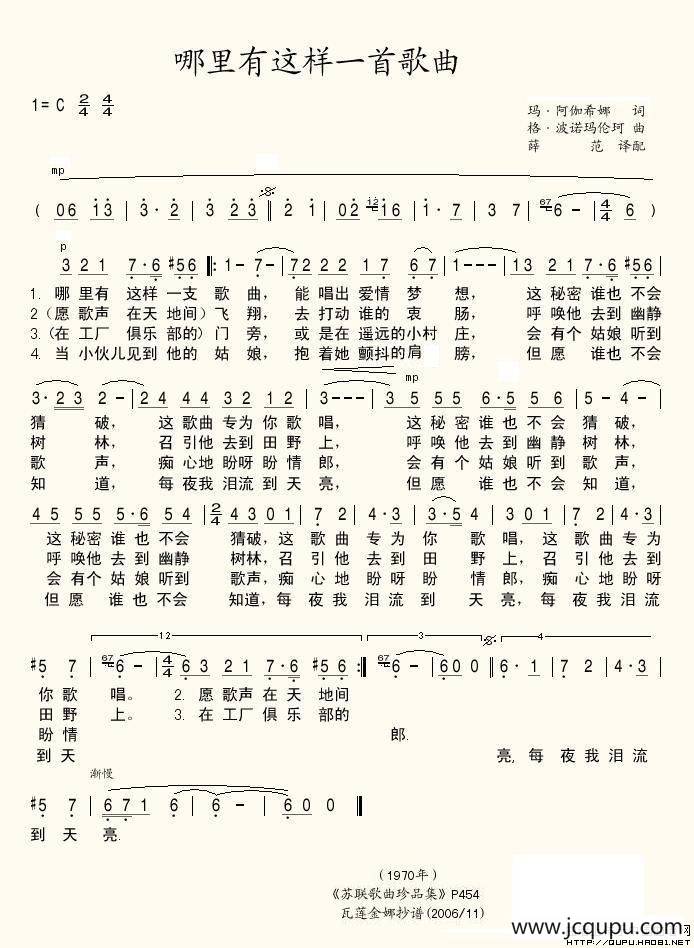 哪里有这样一首歌曲
1= C 2/4 4/4
玛·阿伽希娜 词
格·波诺玛伦珂 曲
薛 范 译配
mp
( 06 13 | 3·2 | 3 23 | 2 1 | 02 12 16 | 1·7 | 3 7 | 67 6 - | 4/4 6 )
p
3 21 7·6 #56 |: 1-7- | 722 21 76 67 | 1--- | 13 21 7·6 #56
1. 哪里有 这样一支 歌 曲, 能 唱出 爱情 梦 想, 这 秘密 谁也 不会
2 (愿歌声 在天地间) 飞 翔, 去 打动 谁的 衷 肠, 呼 唤他 去到 幽静
3. (在工厂 俱乐部的) 门 旁, 或 是在 遥远的 小村 庄, 会 有个 姑娘 听到
4. 当 小伙儿见到 他的 姑 娘, 抱 着她 颤抖的 肩 膀, 但 愿 谁也 不会
mp
3·23 2- | 24 44 32 12 | 3--- | 3 55 55 6·5 56 | 5-4-
猜 破, 这 歌曲 专为 你歌 唱, 这 秘密 谁也 不会 猜 破,
树 林, 召 引他 去到 田野 上, 呼 唤他 去到 幽静 树 林,
歌 声, 痴 心地 盼呀 盼情 郎, 会 有个 姑娘 听到 歌 声,
知 道, 每 夜我 泪流 到天 亮, 但 愿 谁也 不会 知 道,
45 55 5·6 54 | 2/4 4301 | 72 | 4·3 | 3·5 | 4 2 | 4301 | 72 | 4·3
这 秘密 谁也 不会 猜破, 这 歌曲 专 为 你 歌 唱, 这 歌曲 专为
呼 唤他 去到 幽静 树林, 召 引他 去到 田 野 上, 召 引他 去到
会 有个 姑娘 听到 歌声, 痴 心地 盼呀 盼 情 郎, 痴 心地 盼呀
但 愿 谁也 不会 知道, 每 夜我 泪流 到 天 亮, 每 夜我 泪流
12 3 4
#5 7 | 67 6- | 4/4 63 21 7·6 #56 :| 67 6- | 600 | 6·1 | 72 | 4·3
你歌 唱。 2. 愿 歌声 在天 地间
田野 上。 3. 在 工厂 俱乐 部的
盼情 郎.
到天 亮, 每 夜我 泪流
渐慢
#5 7 | 67 1 6 | 6- | 600 |
到 天 亮.
(1970年)
《苏联歌曲珍品集》P454
瓦莲金娜抄谱(2006/11)
www.jcqupu.com
HTTP://QUPU.HAO81.NET